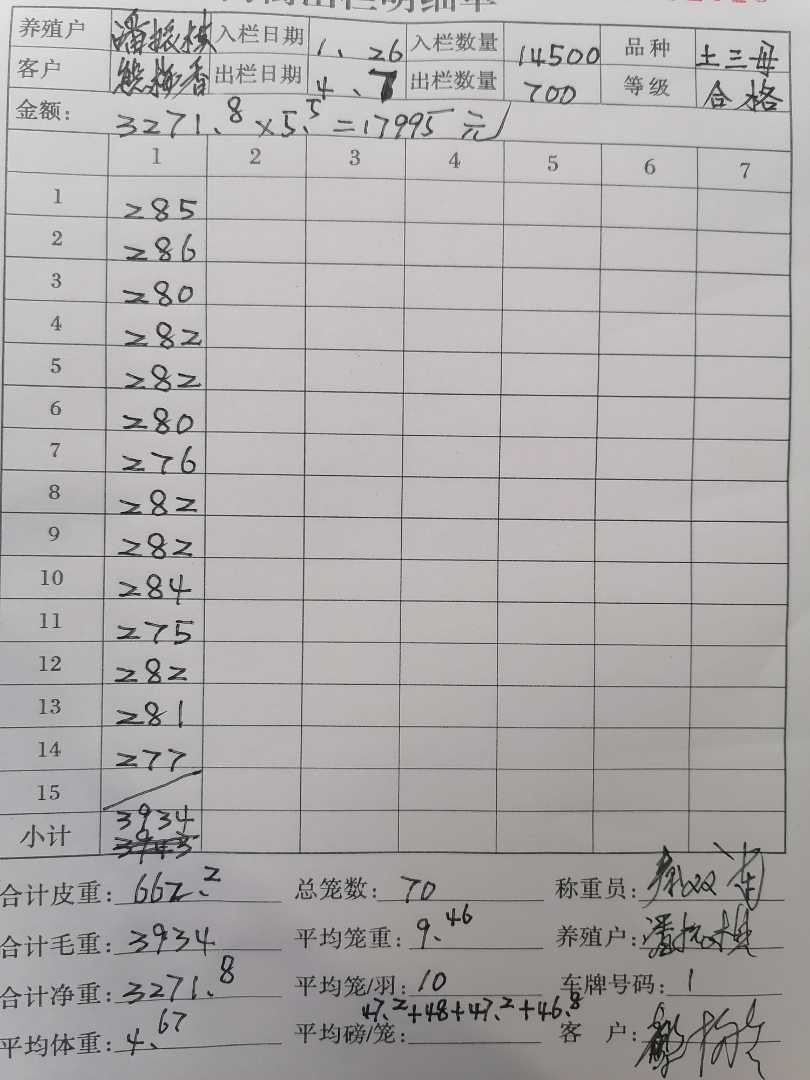 养殖户 潘振棋 入栏日期 1、26 入栏数量 14500 品种 土三母
客户 出栏日期 4、7 出栏数量 700 等级 合格
金额: 3271.8×5.5=17995元
1 2 3 4 5 6 7
1 285
2 286
3 280
4 282
5 282
6 280
7 276
8 282
9 282
10 284
11 275
12 282
13 281
14 277
15
小计 3934
合计皮重: 662.2 总笼数: 70 称重员:
合计毛重: 3934 平均笼重: 9.46 养殖户: 潘振棋
合计净重: 3271.8 平均笼/羽: 10 车牌号码: 1
47.2+48+47.2+46.8
平均体重: 4.67 平均磅/笼: 客户: